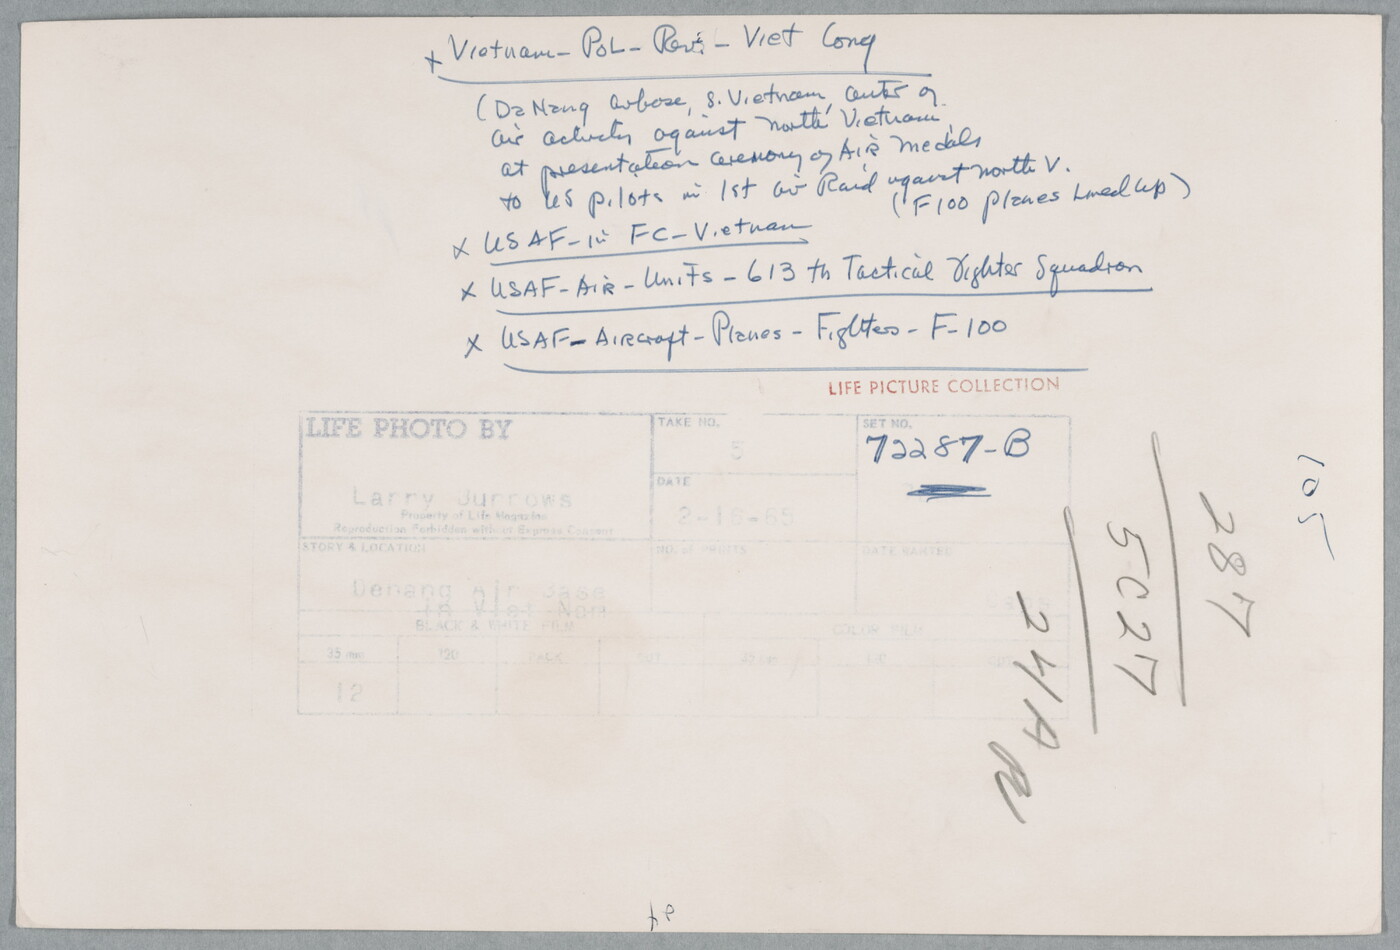 x Vietnam - Pol - Rev. - Viet Cong
(Da Nang airbase, S. Vietnam, center of
air activity against North Vietnam,
at presentation ceremony of Air Medals
to US pilots in 1st air Raid against North V.
(F100 planes lined up)
x USAF - in FC - Vietnam
x USAF - Air - Units - 613th Tactical Fighter Squadron
x USAF - Aircraft - Planes - Fighters - F-100
LIFE PICTURE COLLECTION
LIFE PHOTO BY
TAKE NO.
SET NO.
5
72287-B
Larry Burrows
DATE
Property of Life Magazine
2-18-65
Reproduction Forbidden without Express Consent
STORY & LOCATION
NO. of PRINTS
DATE WANTED
Denang Air Base
in Viet Nam
BLACK & WHITE FILM
COLOR FILM
35 mm
120
PACK
CUT
12
105
287
5C27
241A